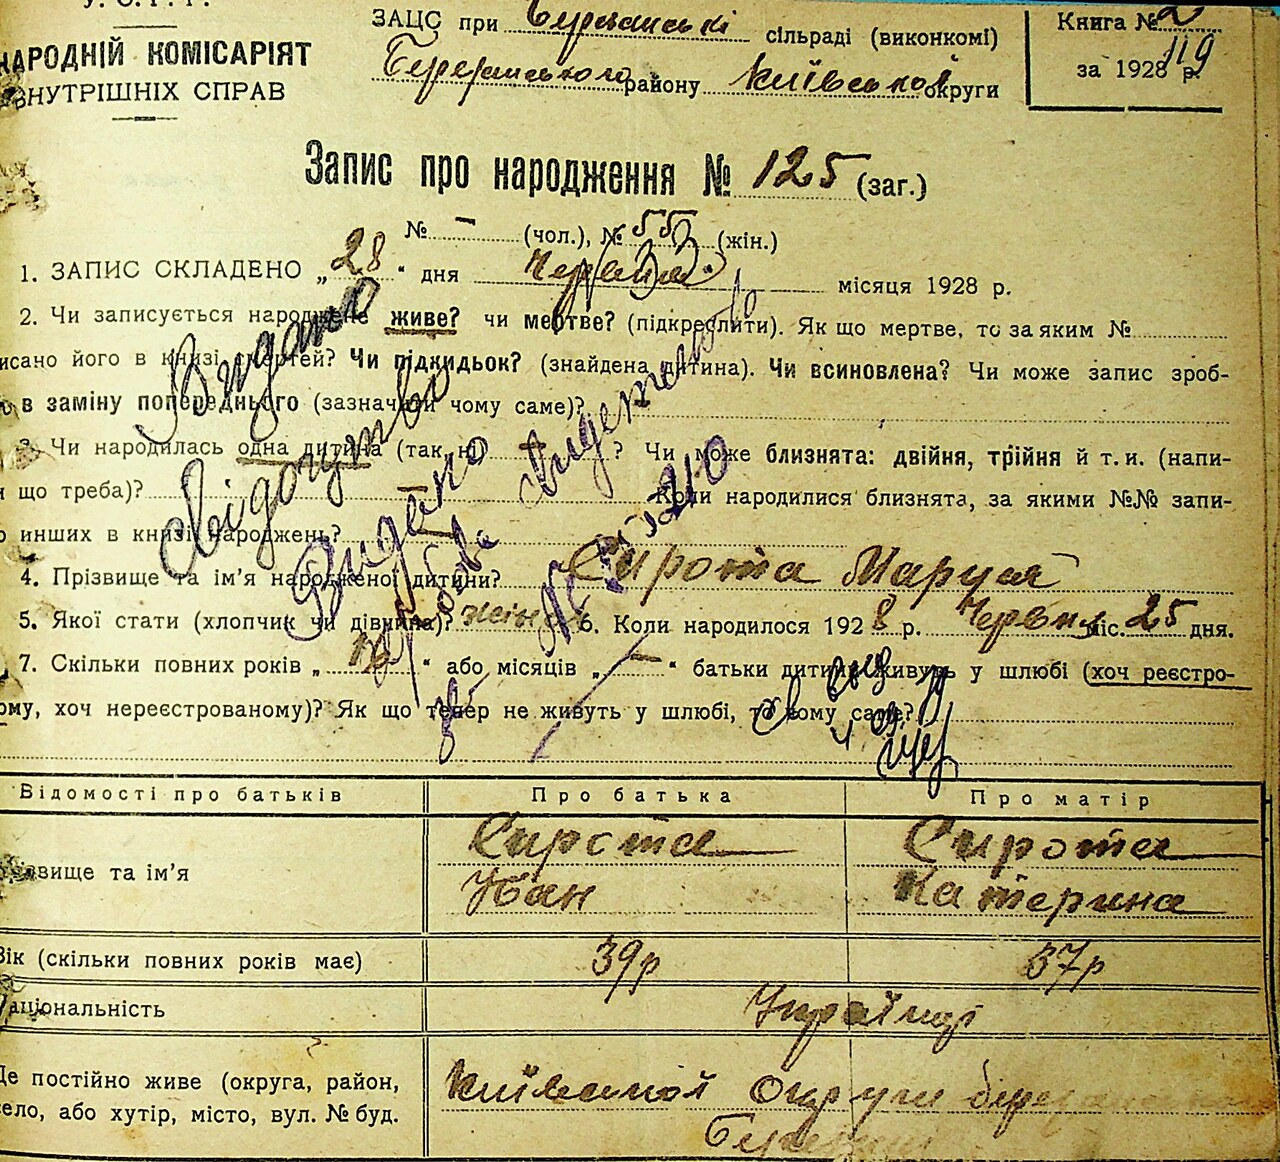 У.С.Р.Р.
НАРОДНІЙ КОМІСАРІЯТ
ВНУТРІШНІХ СПРАВ
ЗАЦС при Березанські сільраді (виконкомі)
Березанського району Київської округи
Книга № 2
119
за 1928 р.
Запис про народження № 125 (заг.)
№ — (чол.), № 55 (жін.)
1. ЗАПИС СКЛАДЕНО „28“ дня Червня місяця 1928 р.
2. Чи записується народжене живе? чи мертве? (підкреслити). Як що мертве, то за яким №
исано його в книзі смертей? Чи підкидьок? (знайдена дитина). Чи всиновлена? Чи може запис зроб-
в заміну попереднього (зазначити чому саме)?
3. Чи народилась одна дитина (так, ні) ? Чи може близнята: двійня, трійня й т. и. (напи-
и що треба)? — Коли народилися близнята, за якими №№ запи-
о инших в книзі народжень?
4. Прізвище та ім’я народженої дитини? Сирота Маруся
5. Якої стати (хлопчик чи дівчина)? жін 6. Коли народилося 1928 р. Червня міс. 25 дня.
7. Скільки повних років „ “ або місяців „ — “ батьки дитини живуть у шлюбі (хоч реєстро-
ому, хоч нереєстрованому)? Як що тепер не живуть у шлюбі, то кому саме?
Видано
свідоцтво
Видано
Відомості про батьків Про батька Про матір
звище та ім’я Сирота Іван Сирота Катерина
Вік (скільки повних років має) 39р 37р
Національність Українці
Де постійно живе (округа, район,
село, або хутір, місто, вул. № буд.
Київської округи